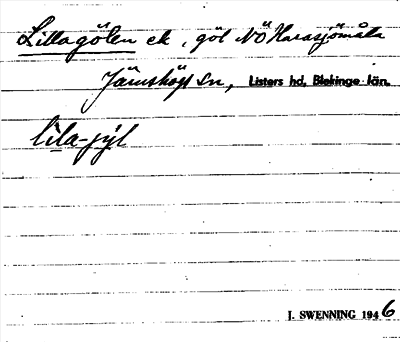 Lillagölen ek, göl NÖ Harasjömåla
Jämshögs sn, Listers hd, Blekinge län.
lila-jýl
J. SWENNING 1946